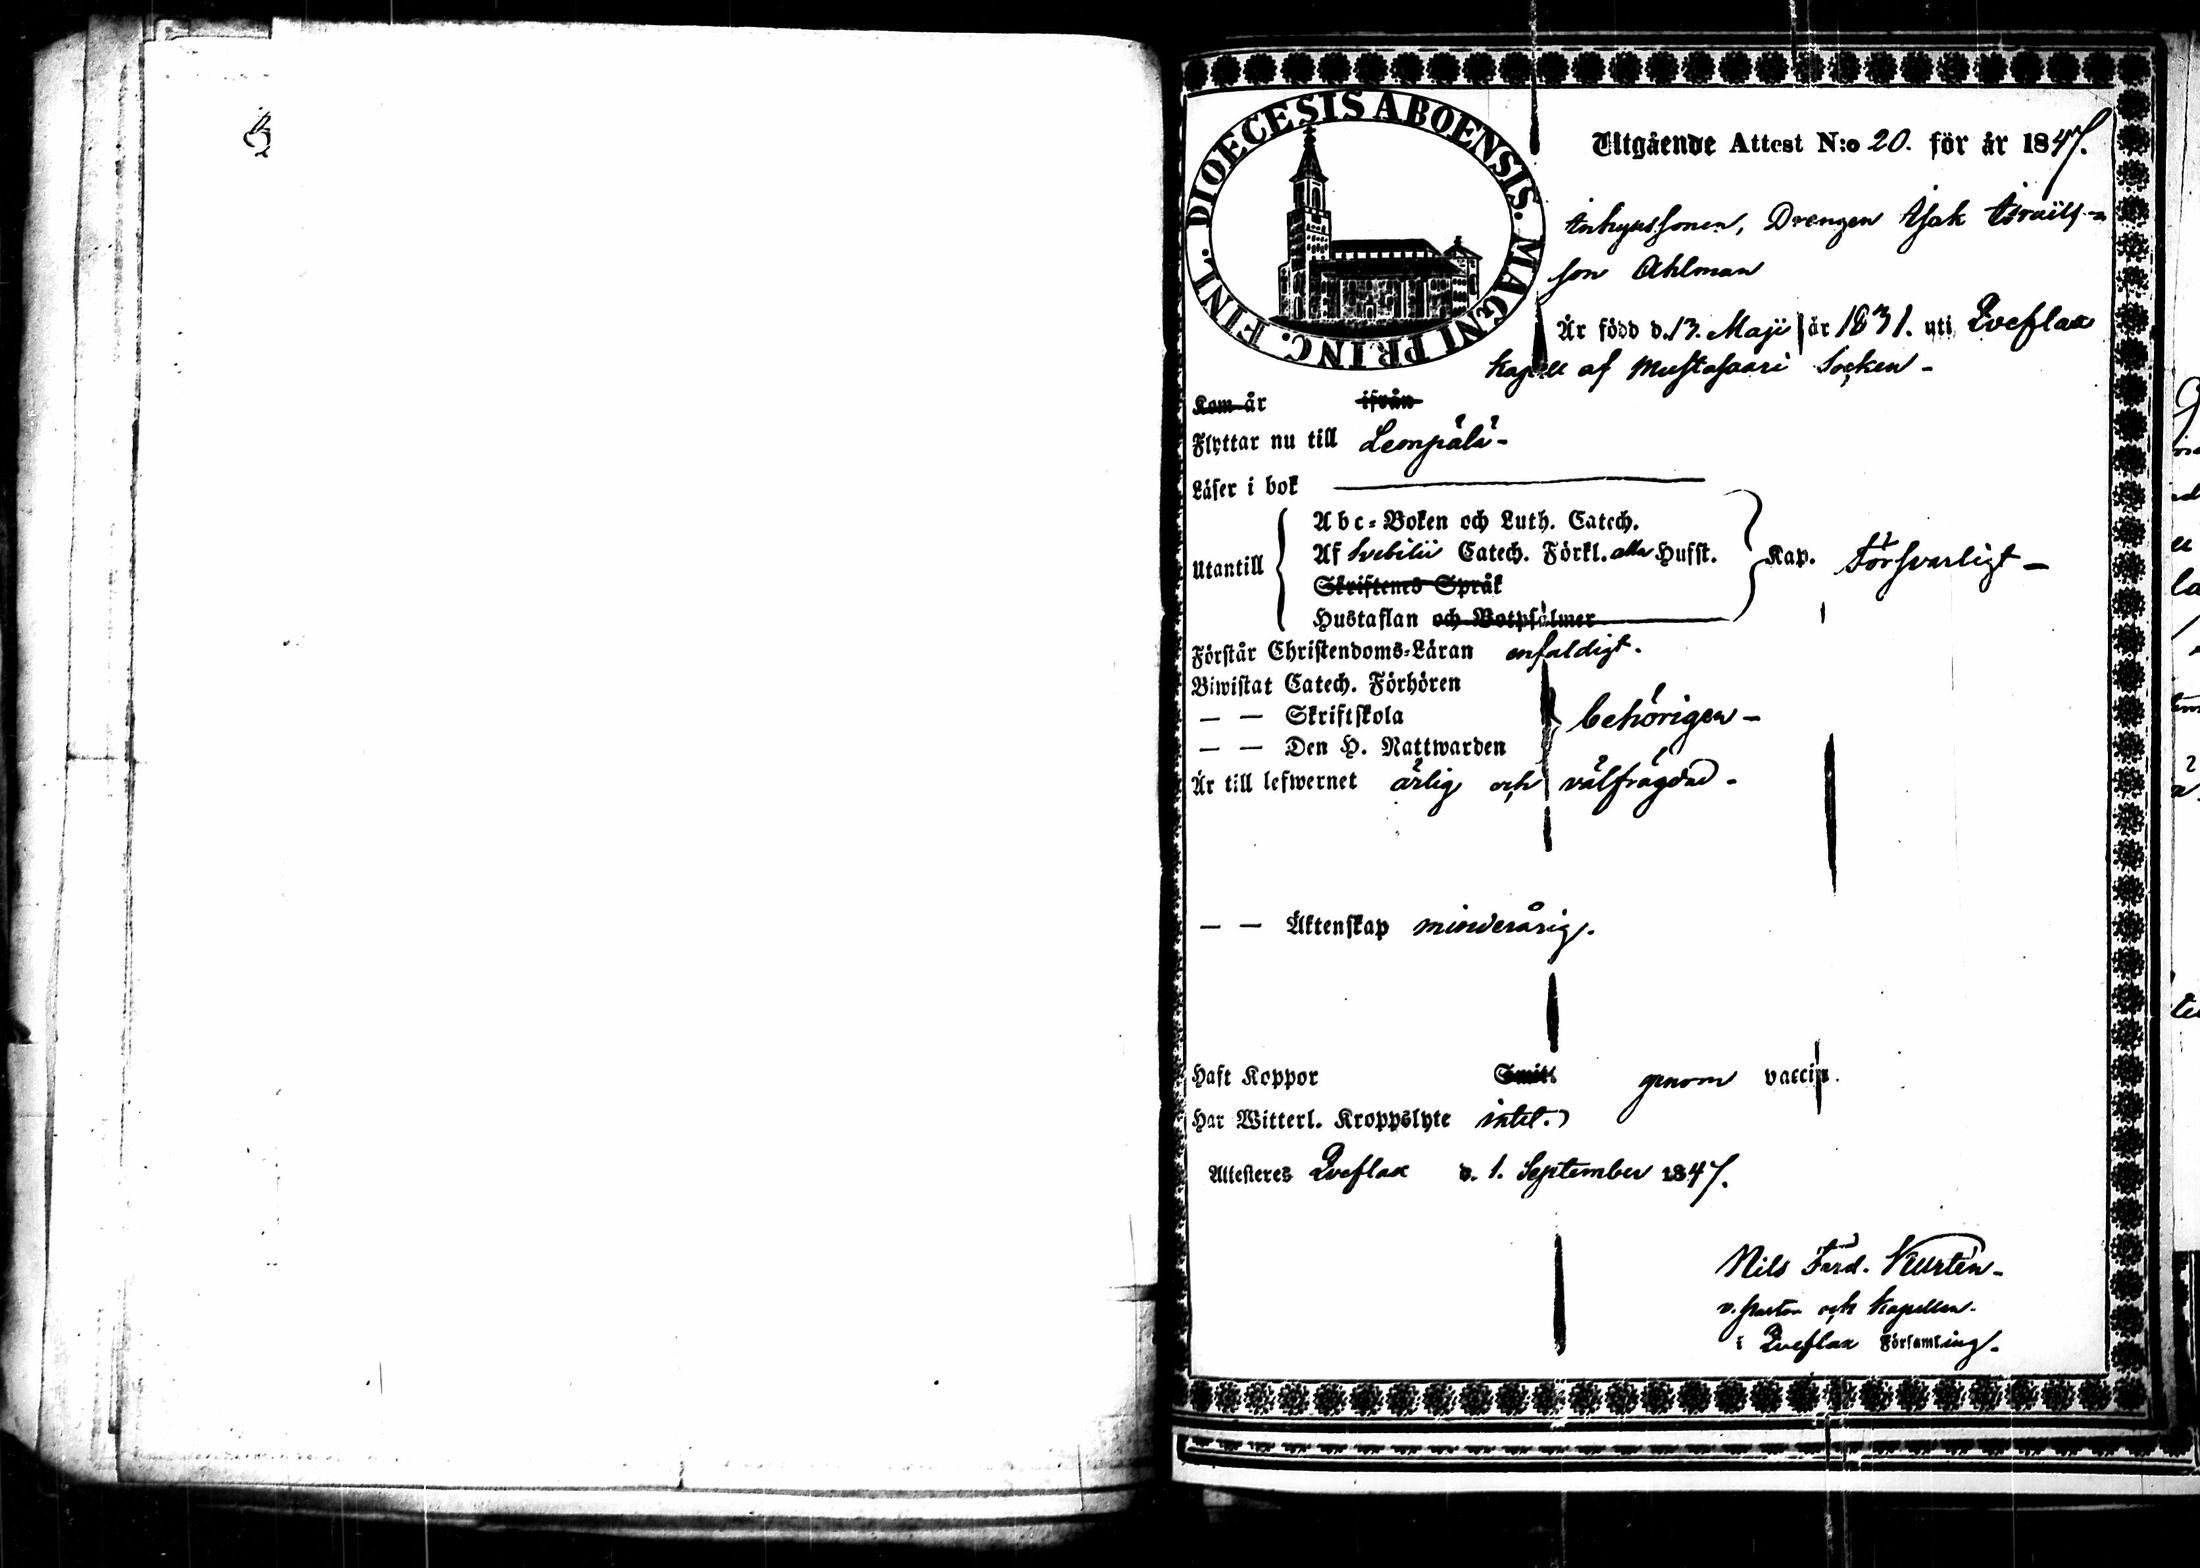 DIOECESIS ABOENSIS. MAGNI PRINC. FINL.
Utgående Attest N:o 20. för år 1847.
Inhysessonen, Drengen Isak Israëls-
son Ahlman
Är född d. 13. Maji år 1831. uti Qveflax
Kapell af Mustasaari Socken -
Kom år ifrån
Flyttar nu till Lempälä -
Läser i bok
Utantill
Abc-Boken och Luth. Catech.
Af Svebilii Catech. Förkl. alla Hufst.
Skriftenes Språk
Hustaflan och Botpsalmer
Kap. försvarligt -
Förstår Christendoms-Läran enfaldigt.
Biwistat Catech. Förhören
— — Skriftskola
behörigen -
— — Den H. Nattwarden
Är till lefwernet ärlig och välfrägdad -
— — Äktenskap minderårig.
Haft Koppor Smitt. genom vaccin.
Har Witterl. Kroppslyte intet.
Attesteres Qveflax d. 1. September 1847.
Nils Ferd. Kurtén -
v. Pastor och Kapellan.
i Qveflax Församling.